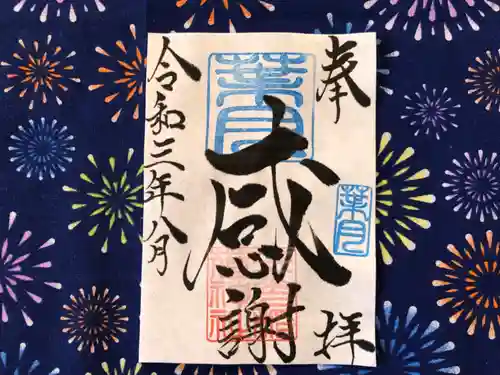 奉拝
葉月
感謝
葉月
令和三年八月